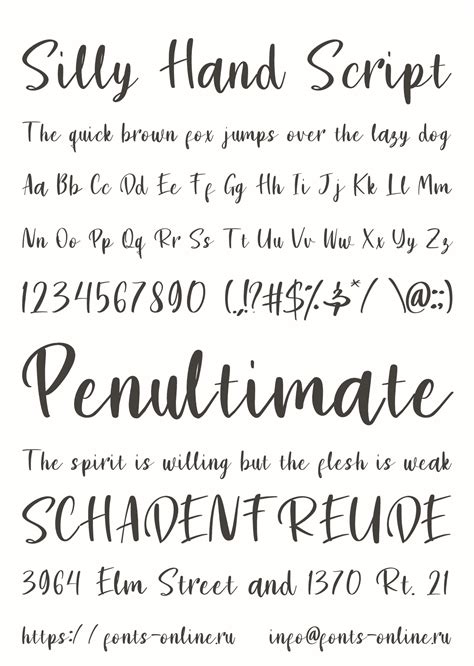 Silly Hand Script
The quick brown fox jumps over the lazy dog
Aa Bb Cc Dd Ee Ff Gg Hh Ii Jj Kk Ll Mm
Nn Oo Pp Qq Rr Ss Tt Uu Vv Ww Xx Yy Zz
1234567890 (.,!?#$%&*/ \@:;)
Penultimate
The spirit is willing but the flesh is weak
SCHADENFREUDE
3964 Elm Street and 1370 Rt. 21
https://fonts-online.ru info@fonts-online.ru